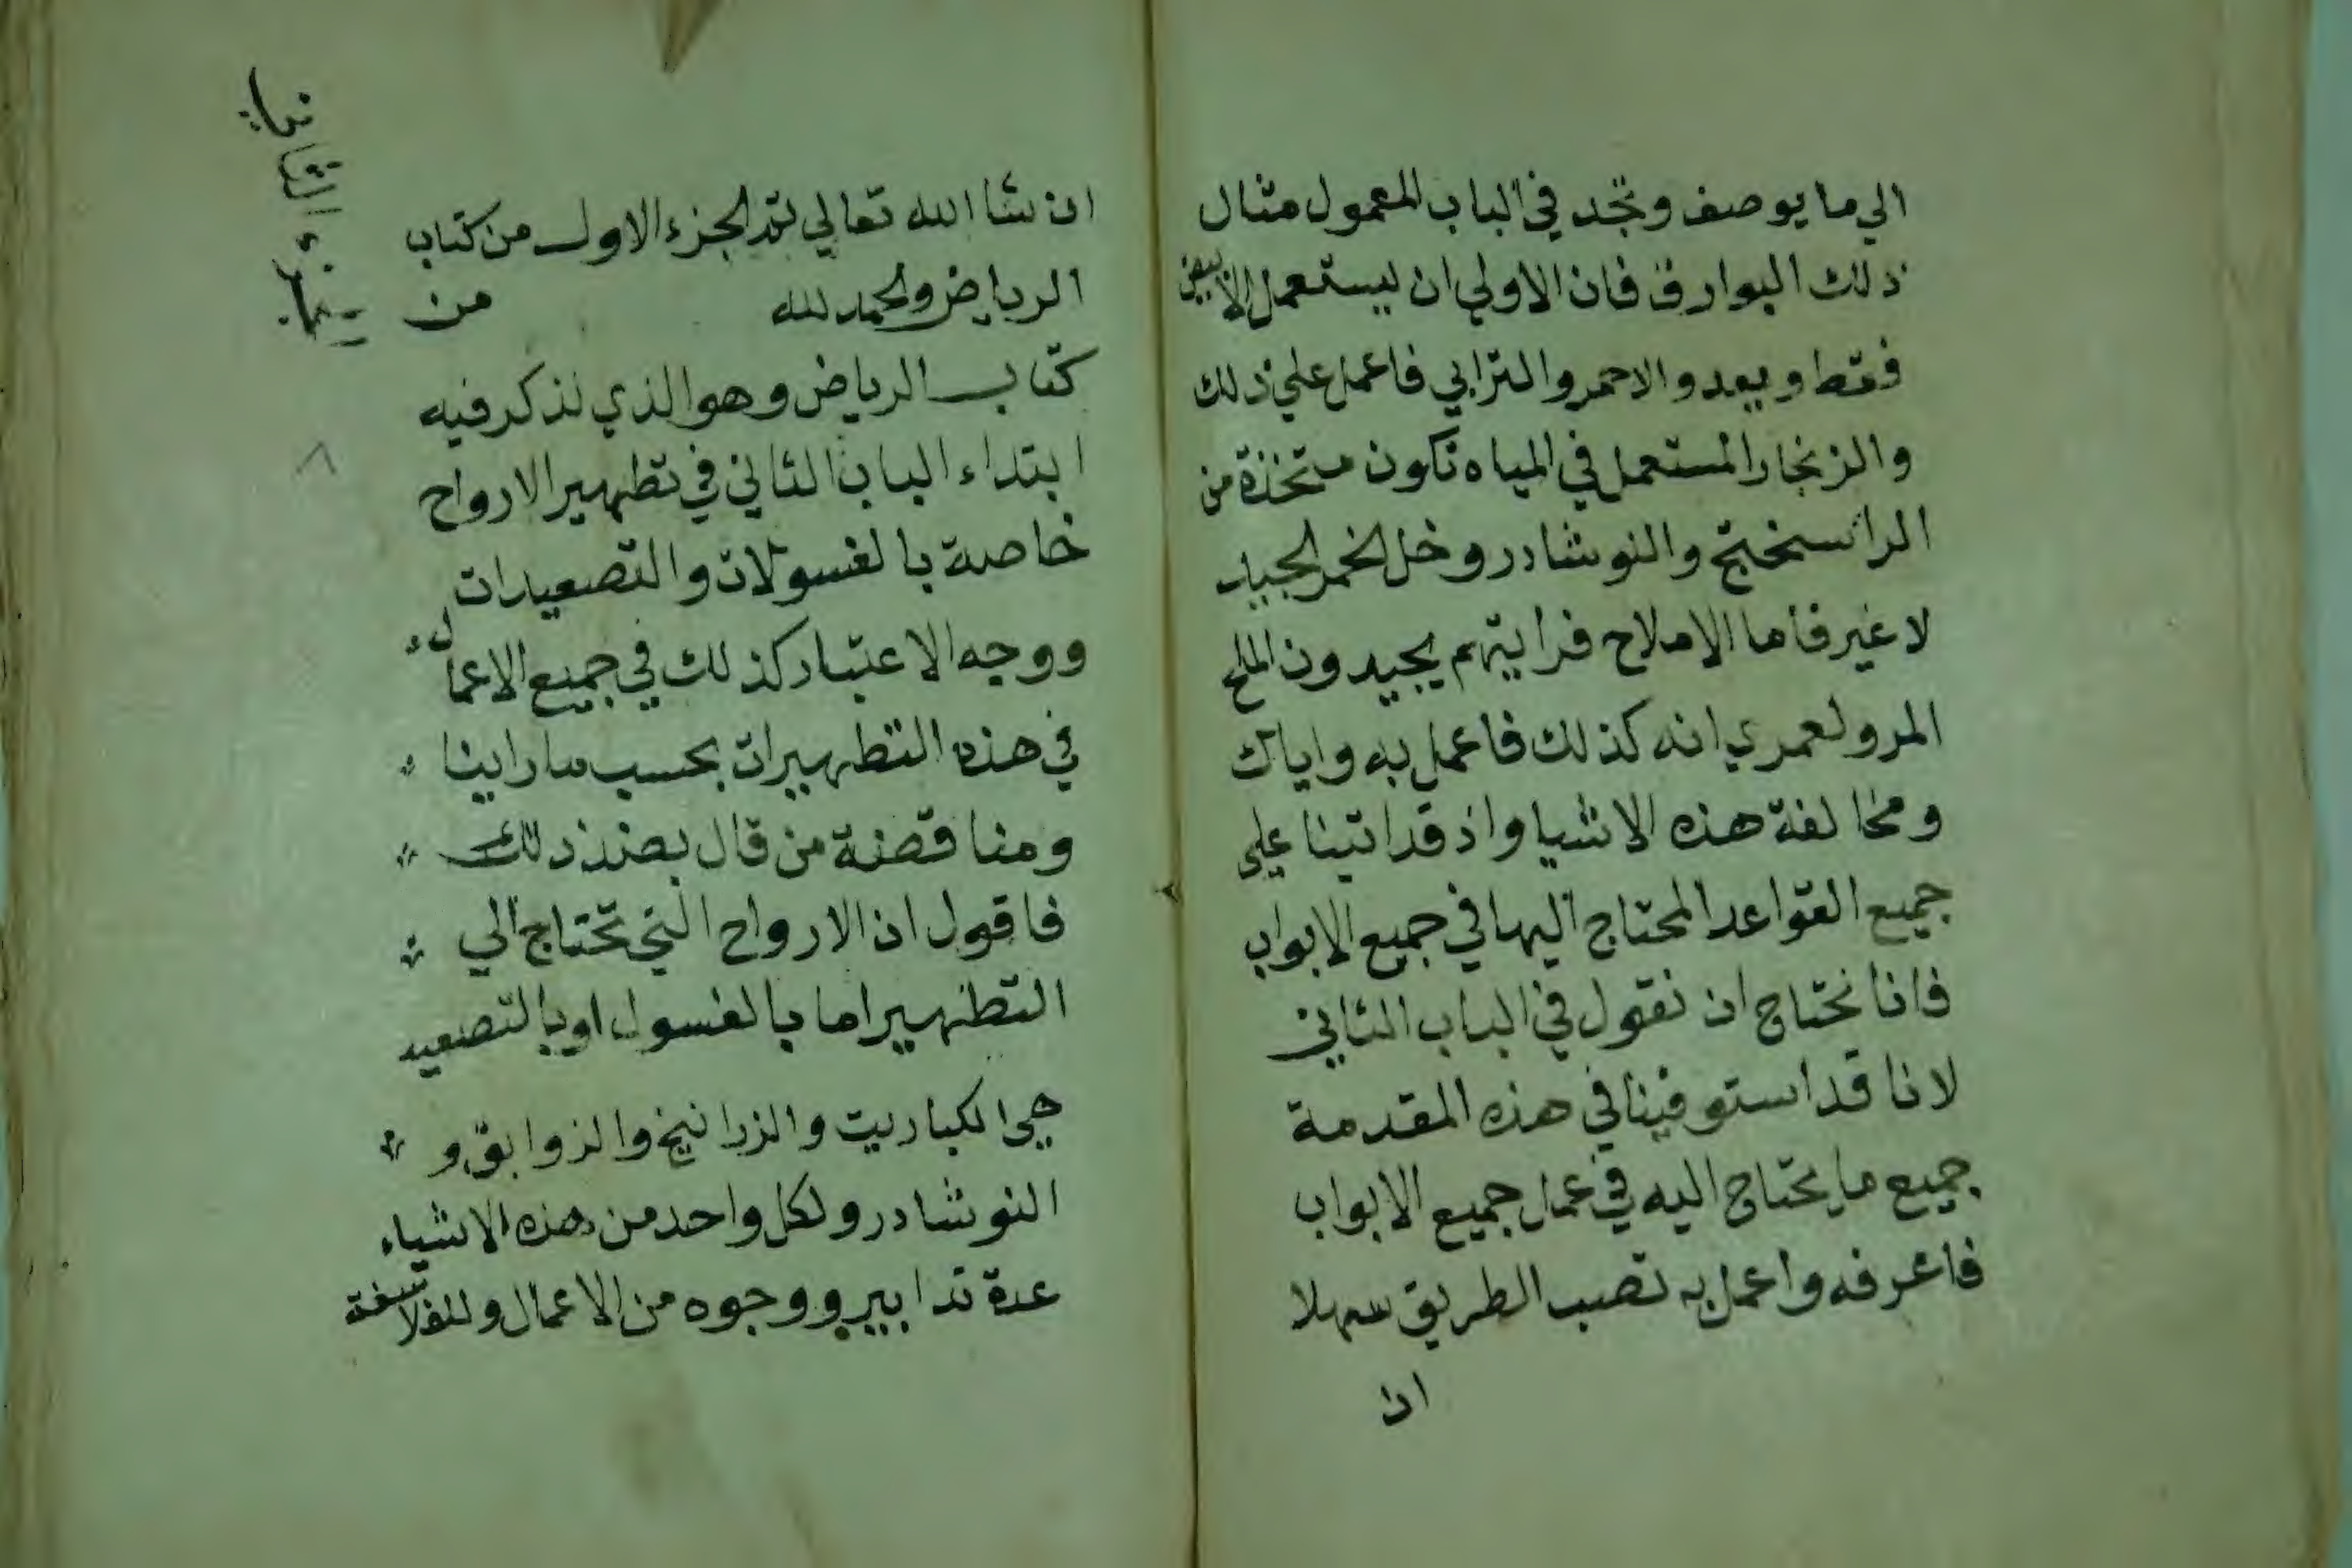 الي ما يوصف وتجد في الباب المعمول مثال
ذلك البوارق فان الاولي ان يستعمل الابيض
فقط ويعد والاحمر والترابي فاعمل علي ذلك
والزنجار المستعمل في المياه تكون متخذة من
الراسختج والنوشادر وخل الخمر الجيد
لا غير فاما الاملاح فرايتهم يجيدون الملح
المر ولعمري انه كذلك فاعمل به واياك
ومخالفة هذه الاشيا واذ قد اتينا علي
جميع القواعد المحتاج اليها في جميع الابواب
فانا نحتاج ان نقول في الباب الثاني
لانا قد استوفينا في هذه المقدمة
جميع ما يحتاج اليه في عمل جميع الابواب
فاعرفه واعمل به تصب الطريق سهلا
ان
ان شا الله تعالي تم الجزء الاول من كتاب
الرياض والحمد لله من
كتاب الرياض وهو الذي نذكر فيه
ابتداء الباب الثاني في تطهير الارواح
خاصة بالغسولات والتصعيدات
ووجه الاعتبار كذلك في جميع الاعمال
في هذه التطهيرات بحسب ما راينا
ومناقضة من قال بضد ذلك
فاقول ان الارواح التي تحتاج الي
التطهير اما بالغسول او بالتصعيد
هي الكباريت والزرانيخ والزوابق و
النوشادر ولكل واحد من هذه الاشياء
عدة تدابير ووجوه من الاعمال وللفلاسفة